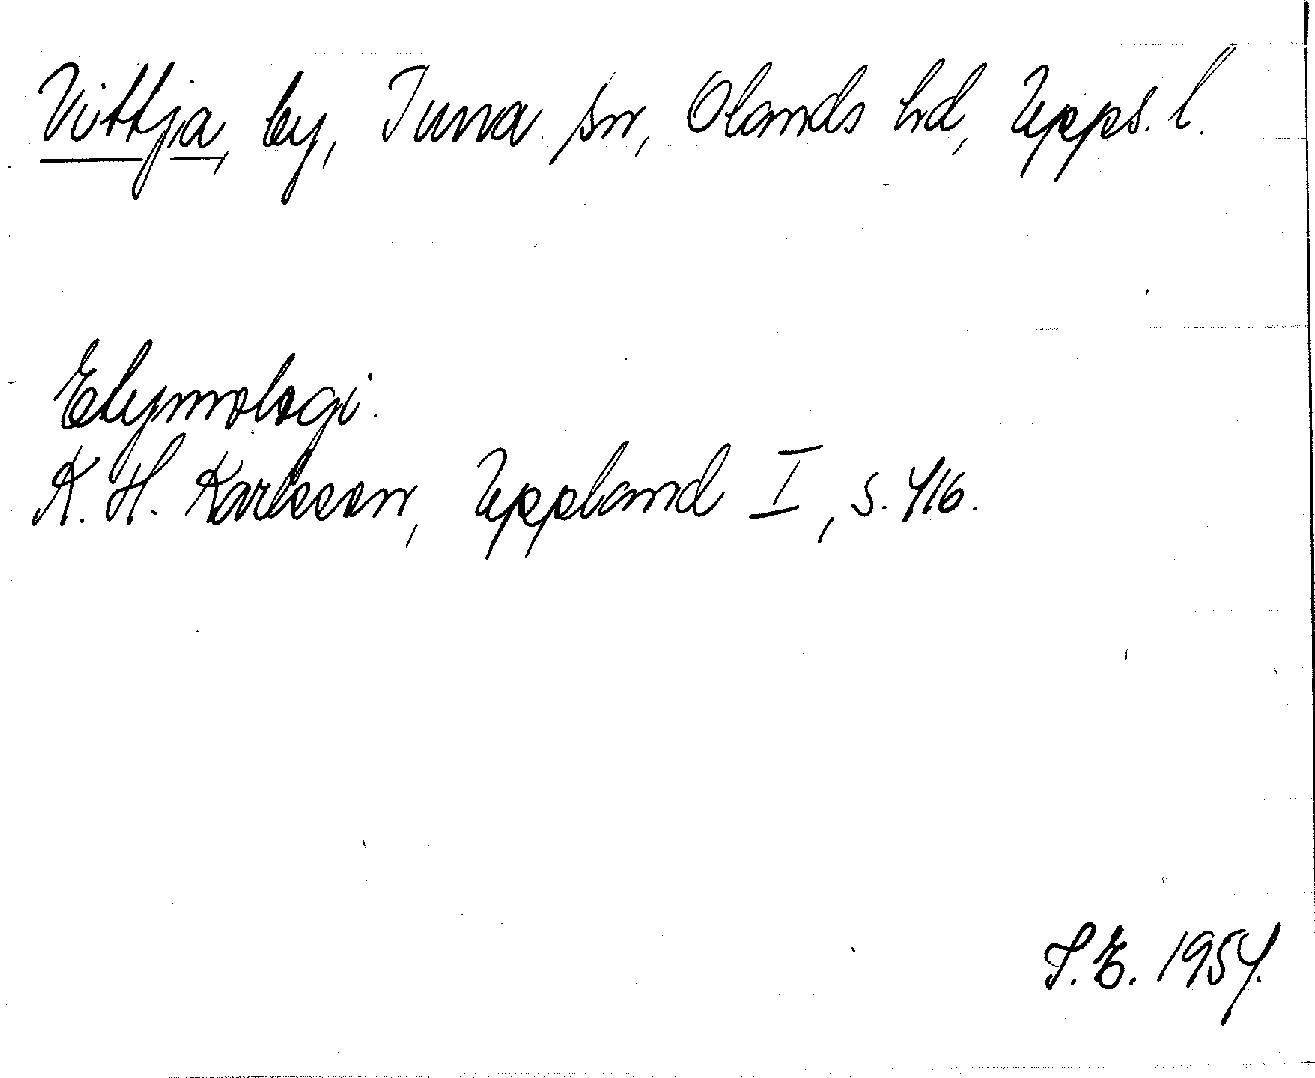 Vittja, by, Tuna sn, Olands hd, Upps. l.
Etymologi.
K. H. Karlsson, Uppland I, s. 416.
S.E. 1954.